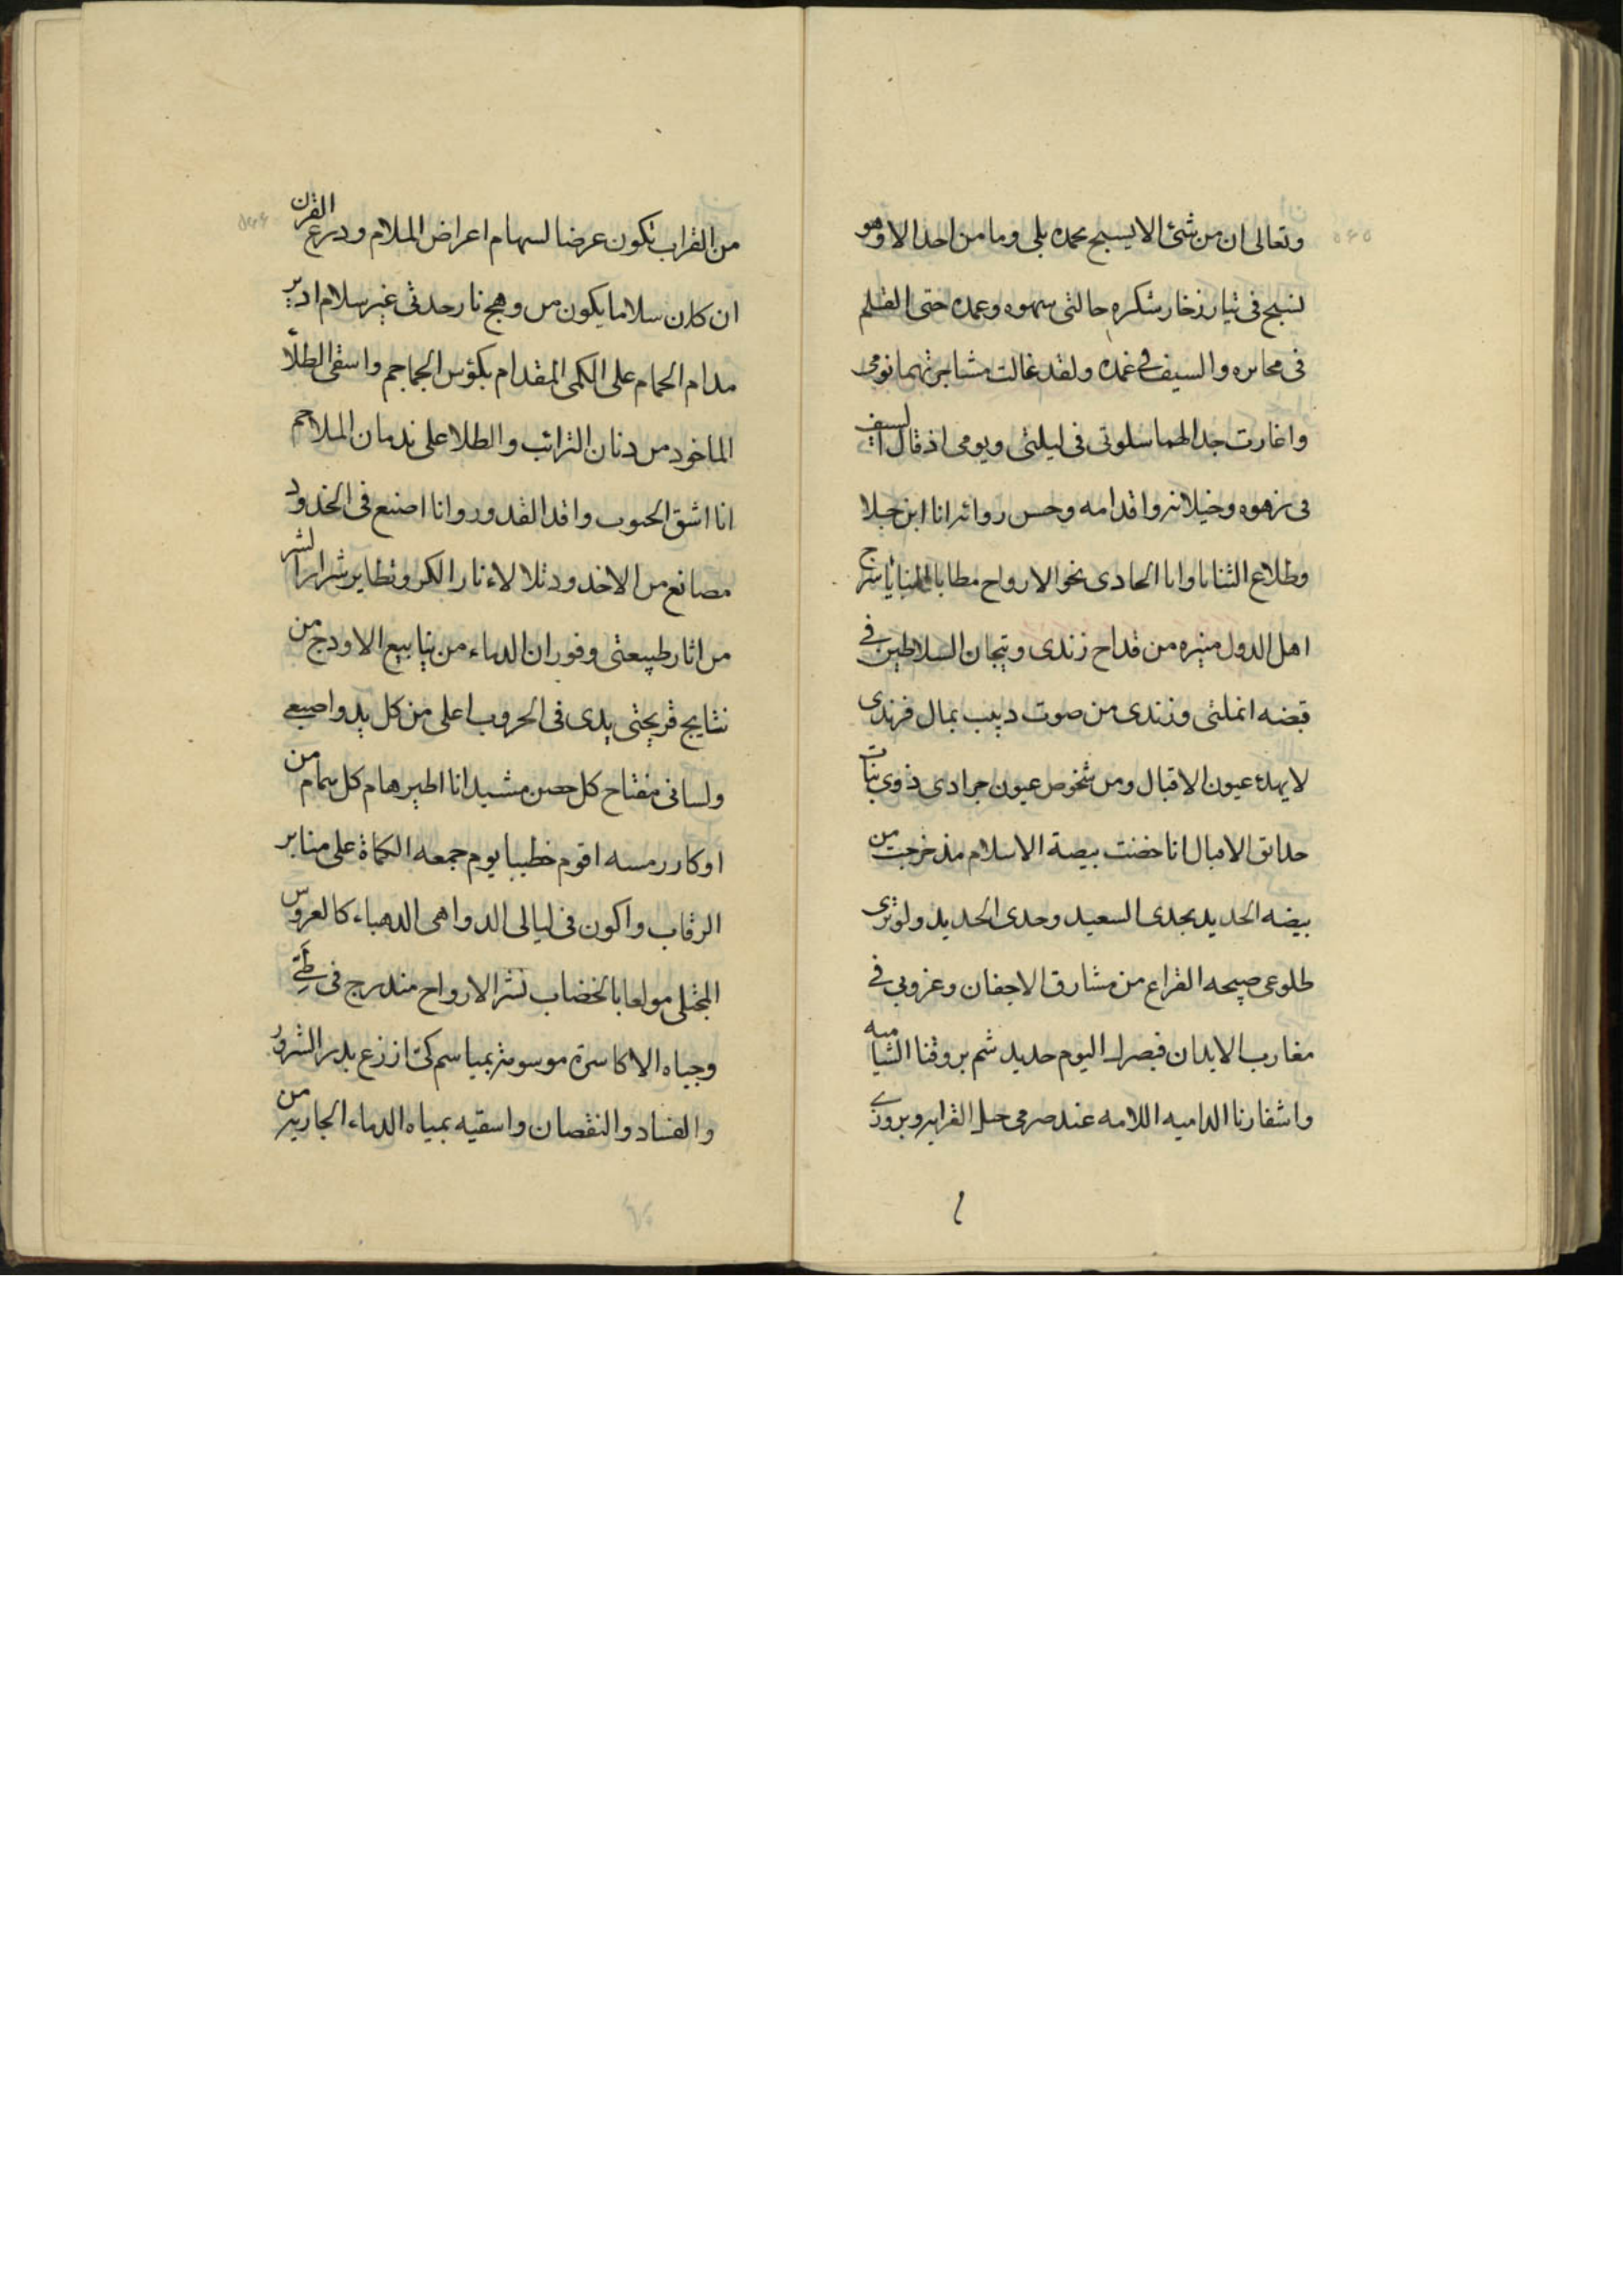 وتعالی ان من شئ الا یسبح بحمده بلی وما من احد الا وهو
لسبح فی تیار زخار شکره حالتی سهوه وعمده حتی القلم
فی محابره والسیف فی غمده ولقد غالت مشاجرتهما نومی
واغارت جدالهما سلوتی فی لیلتی ویومی اذ قال السیف
فی زهوه وخیلائه واقدامه وحسن روائه انا ابن جلا
وطلاع الثنایا وانا الحادی نحو الارواح مطایا المنایا سرج
اهل الدول منیره من قداح زندی وتیجان السلاطین فی
قبضه انملتی وزندی من صوت دبیب نمال فرندی
لا یهدء عیون الاقبال ومن شخوص عیون جرادی ذوی نبات
حدائق الامبال انا حضنت بیضة الاسلام مذ خرجت من
بیضه الحدید بجدی السعید وحدی الحدید ولو تری
طلوعی صبیحه القراع من مشارق الاجفان وغروبی فی
مغارب الابدان فبصرک الیوم حدید شم بروقنا الشامیه
واشفارنا الدامیه اللامه عند صرمی حبل القرابه وبروزی
من القراب تکون عرضا لسهام اعراض الملام ودرع القرن
ان کان سلاما یکون من وهج نار حدتی غیر سلام ادیر
مدام الحمام علی الکمی المقدام بکؤس الجماجم واسقی الطلا
الماخوذ من دنان الترائب والطلا علی ندمان الملاحم
انا اشق الجنوب واقد القدور وانا اصنع فی الخدود
مصانع من الاخدود وتلالاء نار الکر وتطایر شرار الشر
من اثار طبیعتی وفوران الدماء من ینابیع الاودج من
نتایج قریحتی یدی فی الحروب اعلی من کل ید واصبعی
ولسانی مفتاح کل حصن مشید انا اطیر هام کل همام من
اوکار رمسه اقوم خطیبا یوم جمعه الکماة علی منابر
الرقاب واکون فی لیالی الدواهی الدهیاء کالعروس
المجتلی مولعا بالخضاب نشر الارواح مندرج فی طیی
وجباه الاکاسرة موسومة بمیاسم کی ازرع بذر الشرور
والفساد والنقصان واسقیه بمیاه الدماء الجاریه من